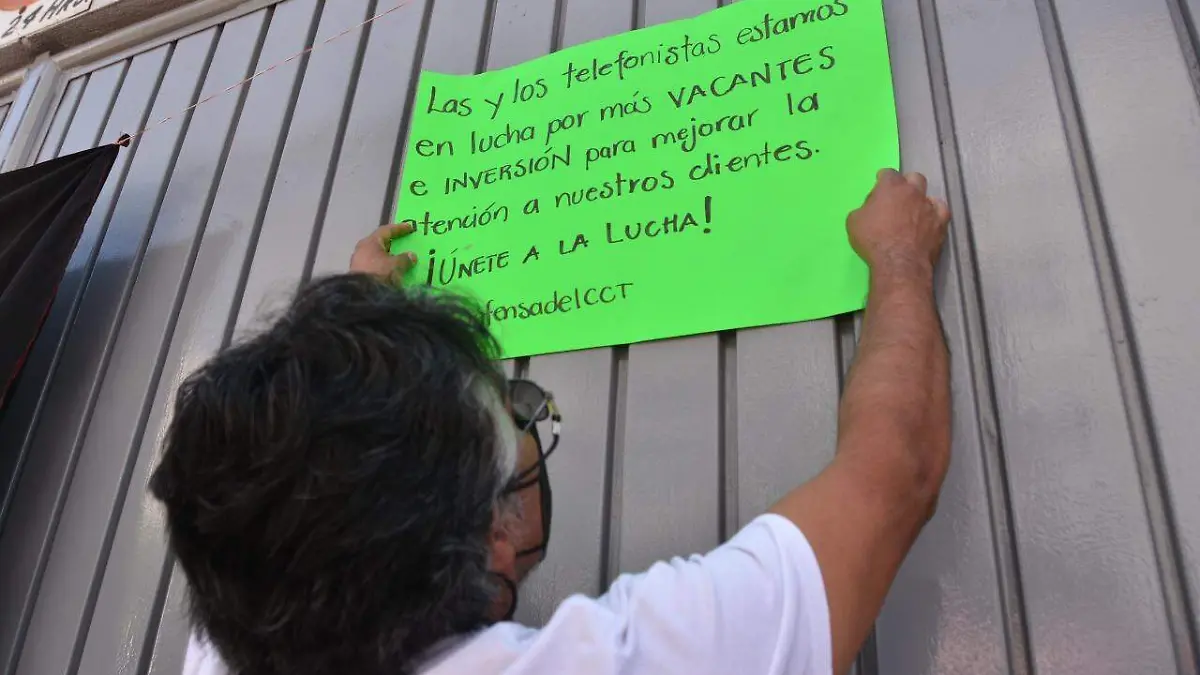 24 HRS
Las y los telefonistas estamos
en lucha por más VACANTES
e INVERSIÓN para mejorar la
atención a nuestros clientes.
¡ÚNETE A LA LUCHA!
fensadelCCT